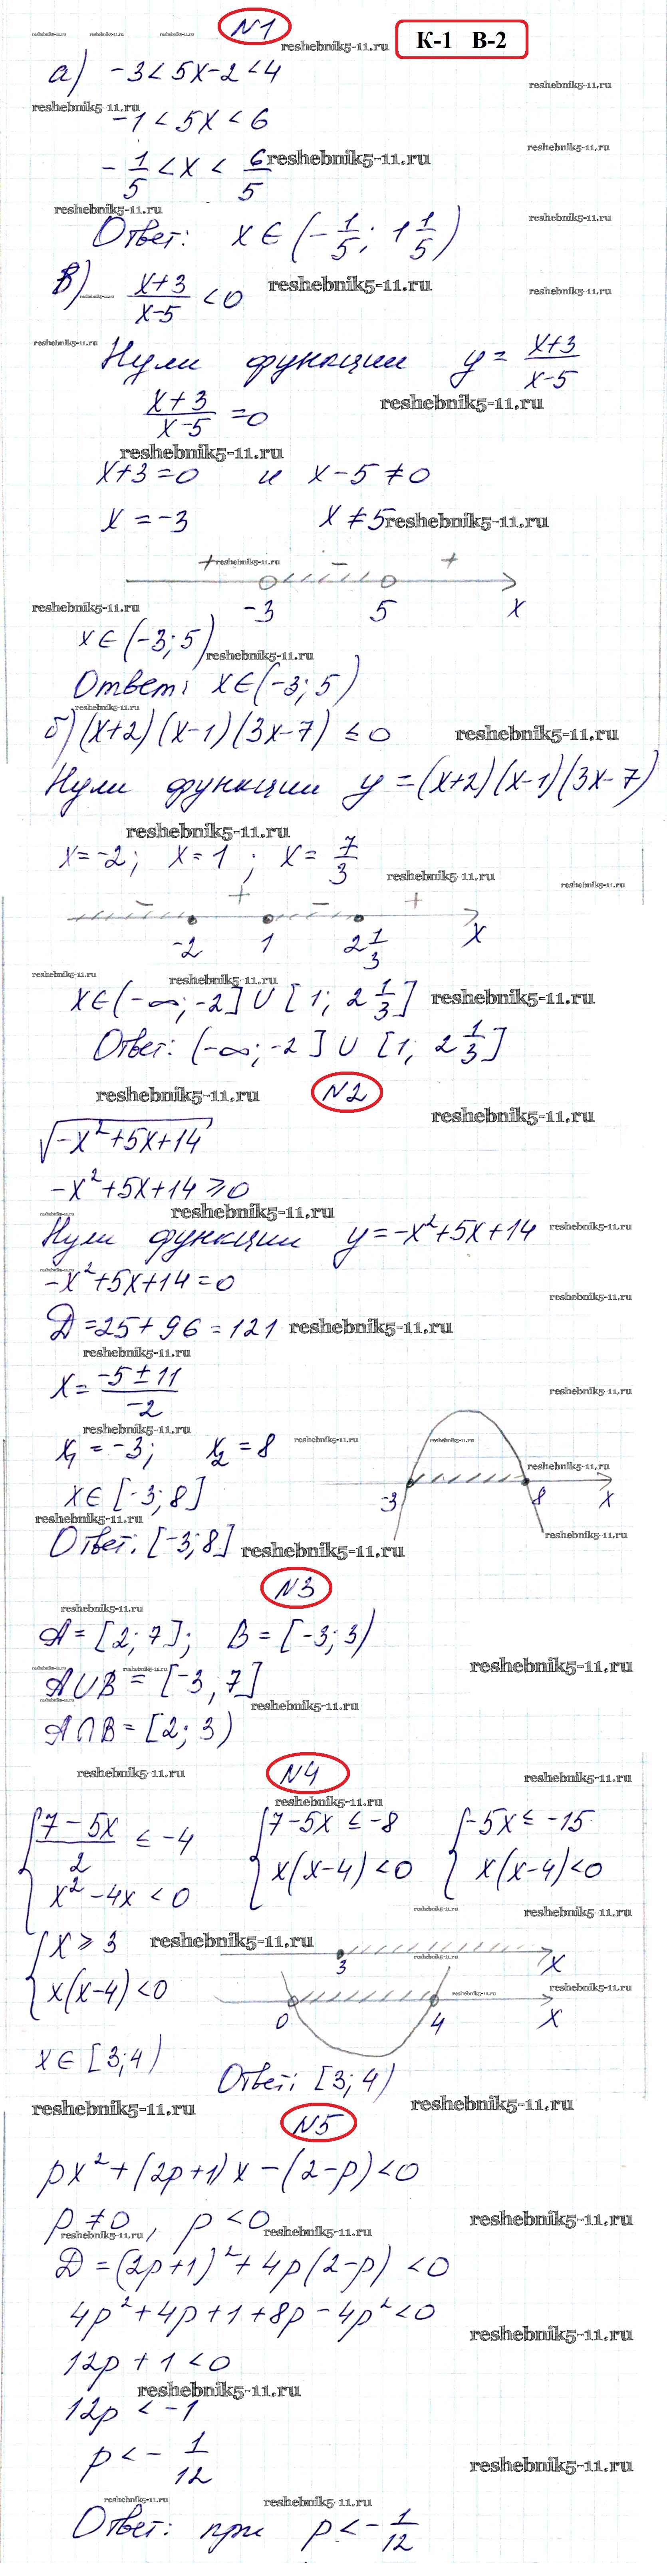 N1
К-1 В-2
reshebnik5-11.ru
а) -3<5x-2<4
-1<5x<6
-1/5<x<6/5
Ответ: x∈(-1/5; 1 1/5)
в) (x+3)/(x-5) <0
Нули функции y=(x+3)/(x-5)
(x+3)/(x-5) =0
x+3=0 и x-5≠0
x=-3 x≠5
+ - +
-3 5 x
x∈(-3;5)
Ответ: x∈(-3;5)
б) (x+2)(x-1)(3x-7)≤0
Нули функции y=(x+2)(x-1)(3x-7)
x=-2; x=1; x=7/3
- + - +
-2 1 2 1/3 x
x∈(-∞;-2]∪[1; 2 1/3]
Ответ: (-∞;-2]∪[1; 2 1/3]
N2
√(-x²+5x+14)
-x²+5x+14≥0
Нули функции y=-x²+5x+14
-x²+5x+14=0
Д=25+96=121
x=(-5±11)/(-2)
x₁=-3; x₂=8
x∈[-3;8]
-3 8 x
Ответ: [-3;8]
N3
A=[2;7]; B=[-3;3)
A∪B=[-3,7]
A∩B=[2;3)
N4
{(7-5x)/2≤-4 {7-5x≤-8 {-5x≤-15
x²-4x<0 x(x-4)<0 x(x-4)<0
{x≥3 3 x
x(x-4)<0 0 4 x
x∈[3;4) Ответ: [3;4)
N5
px²+(2p+1)x-(2-p)<0
p≠0, p<0
Д=(2p+1)²+4p(2-p)<0
4p²+4p+1+8p-4p²<0
12p+1<0
12p<-1
p<-1/12
Ответ: при p<-1/12